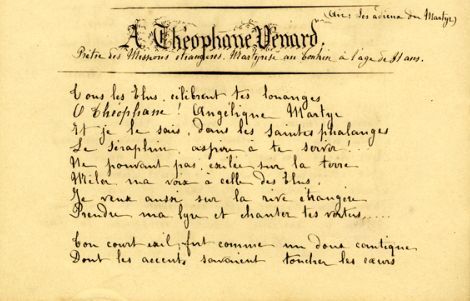 (Air: les adieux du Martyr)
A Théophane Vénard,
Prêtre des Missions étrangères. Martyrisé au Tonkin à l'age de 31 ans.
Tous les Elus, célèbrent tes louanges
O Théophane! Angélique Martyr
Et je le sais, dans les saintes phalanges
Le séraphin, aspire à te servir!..
Ne pouvant pas, exilée sur la terre
Mêler ma voix à celle des Elus.
Je veux aussi, sur la rive étrangère
Prendre ma lyre et chanter tes vertus.....
Ton court exil, fut comme un doux cantique
Dont les accents savaient toucher les cœurs